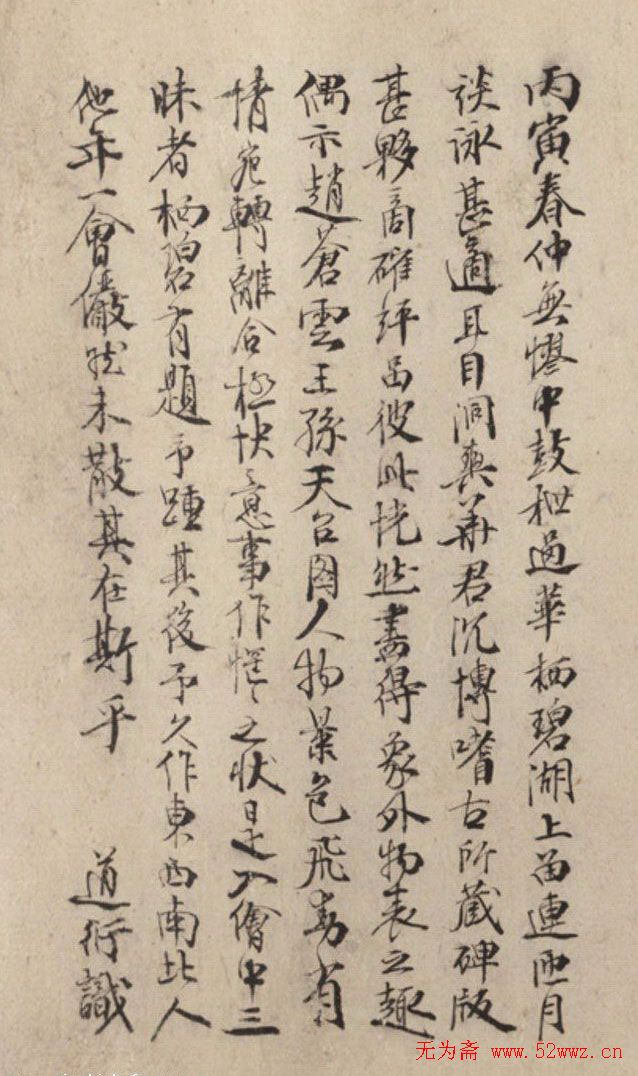 丙寅春仲無憀中鼓枻過華栖碧湖上留連匝月
談詠甚適耳目洞爽華君沉博嗜古所藏碑版
甚夥商確評品彼此恍然書得象外物表之趣
偶示趙蒼雲王孫天台圖人物景色飛動有
情宛轉離合極快意事作惺〻之狀是入繪中三
昧者栖碧有題予踵其後予久作東西南北人
他年一會儼然未散其在斯乎
道衍識
无为斋 www.52wwz.cn